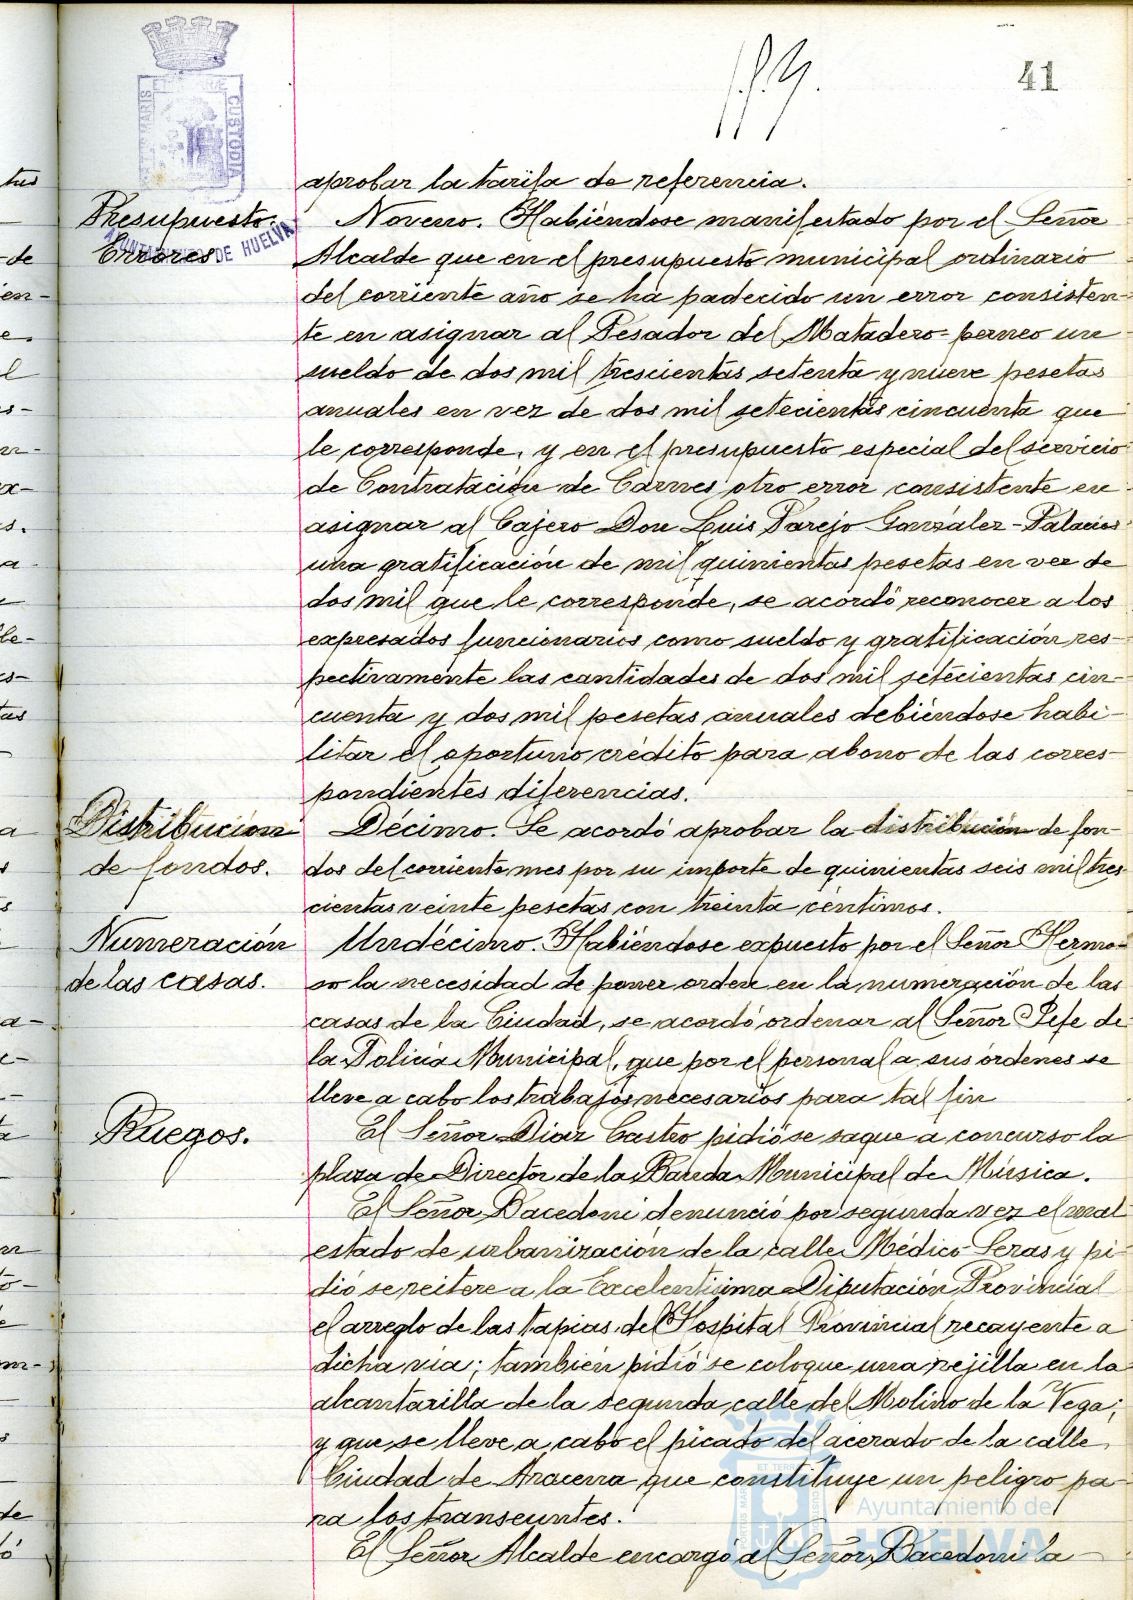 41
PORTUS MARIS ET TERRAE CUSTODIA
AYUNTAMIENTO DE HUELVA
aprobar la tarifa de referencia.
Presupuesto.
Errores
Noveno. Habiéndose manifestado por el Señor
Alcalde que en el presupuesto municipal ordinario
del corriente año se ha padecido un error consisten-
te en asignar al Pesador del Matadero-perneo un
sueldo de dos mil trescientas setenta y nueve pesetas
anuales en vez de dos mil setecientas cincuenta que
le corresponde, y en el presupuesto especial del servicio
de Contratación de Carnes otro error consistente en
asignar al Cajero Don Luis Parejo González-Palacios
una gratificación de mil quinientas pesetas en vez de
dos mil que le corresponde, se acordó reconocer a los
expresados funcionarios como sueldo y gratificación res-
pectivamente las cantidades de dos mil setecientas cin-
cuenta y dos mil pesetas anuales debiéndose habi-
litar el oportuno crédito para abono de las corres-
pondientes diferencias.
Distribución
de fondos.
Décimo. Se acordó aprobar la distribución de fon-
dos del corriente mes por su importe de quinientas seis mil tres
cientas veinte pesetas con treinta céntimos.
Numeración
de las casas.
Undécimo. Habiéndose expuesto por el Señor Hermo-
so la necesidad de poner orden en la numeración de las
casas de la Ciudad, se acordó ordenar al Señor Jefe de
la Policía Municipal, que por el personal a sus órdenes se
lleve a cabo los trabajos necesarios para tal fin
Ruegos.
El Señor Díaz Castro pidió se saque a concurso la
plaza de Director de la Banda Municipal de Música.
El Señor Bacedoni denunció por segunda vez el mal
estado de urbanización de la calle Médico Seras y pi-
dió se reitere a la Excelentísima Diputación Provincial
el arreglo de las tapias del Hospital Provincial recayente a
dicha vía; también pidió se coloque una rejilla en la
alcantarilla de la segunda calle del Molino de la Vega;
y que se lleve a cabo el picado del acerado de la calle
Ciudad de Aracena que constituye un peligro pa-
ra los transeuntes.
El Señor Alcalde encargó al Señor Bacedoni la
Ayuntamiento de
HUELVA